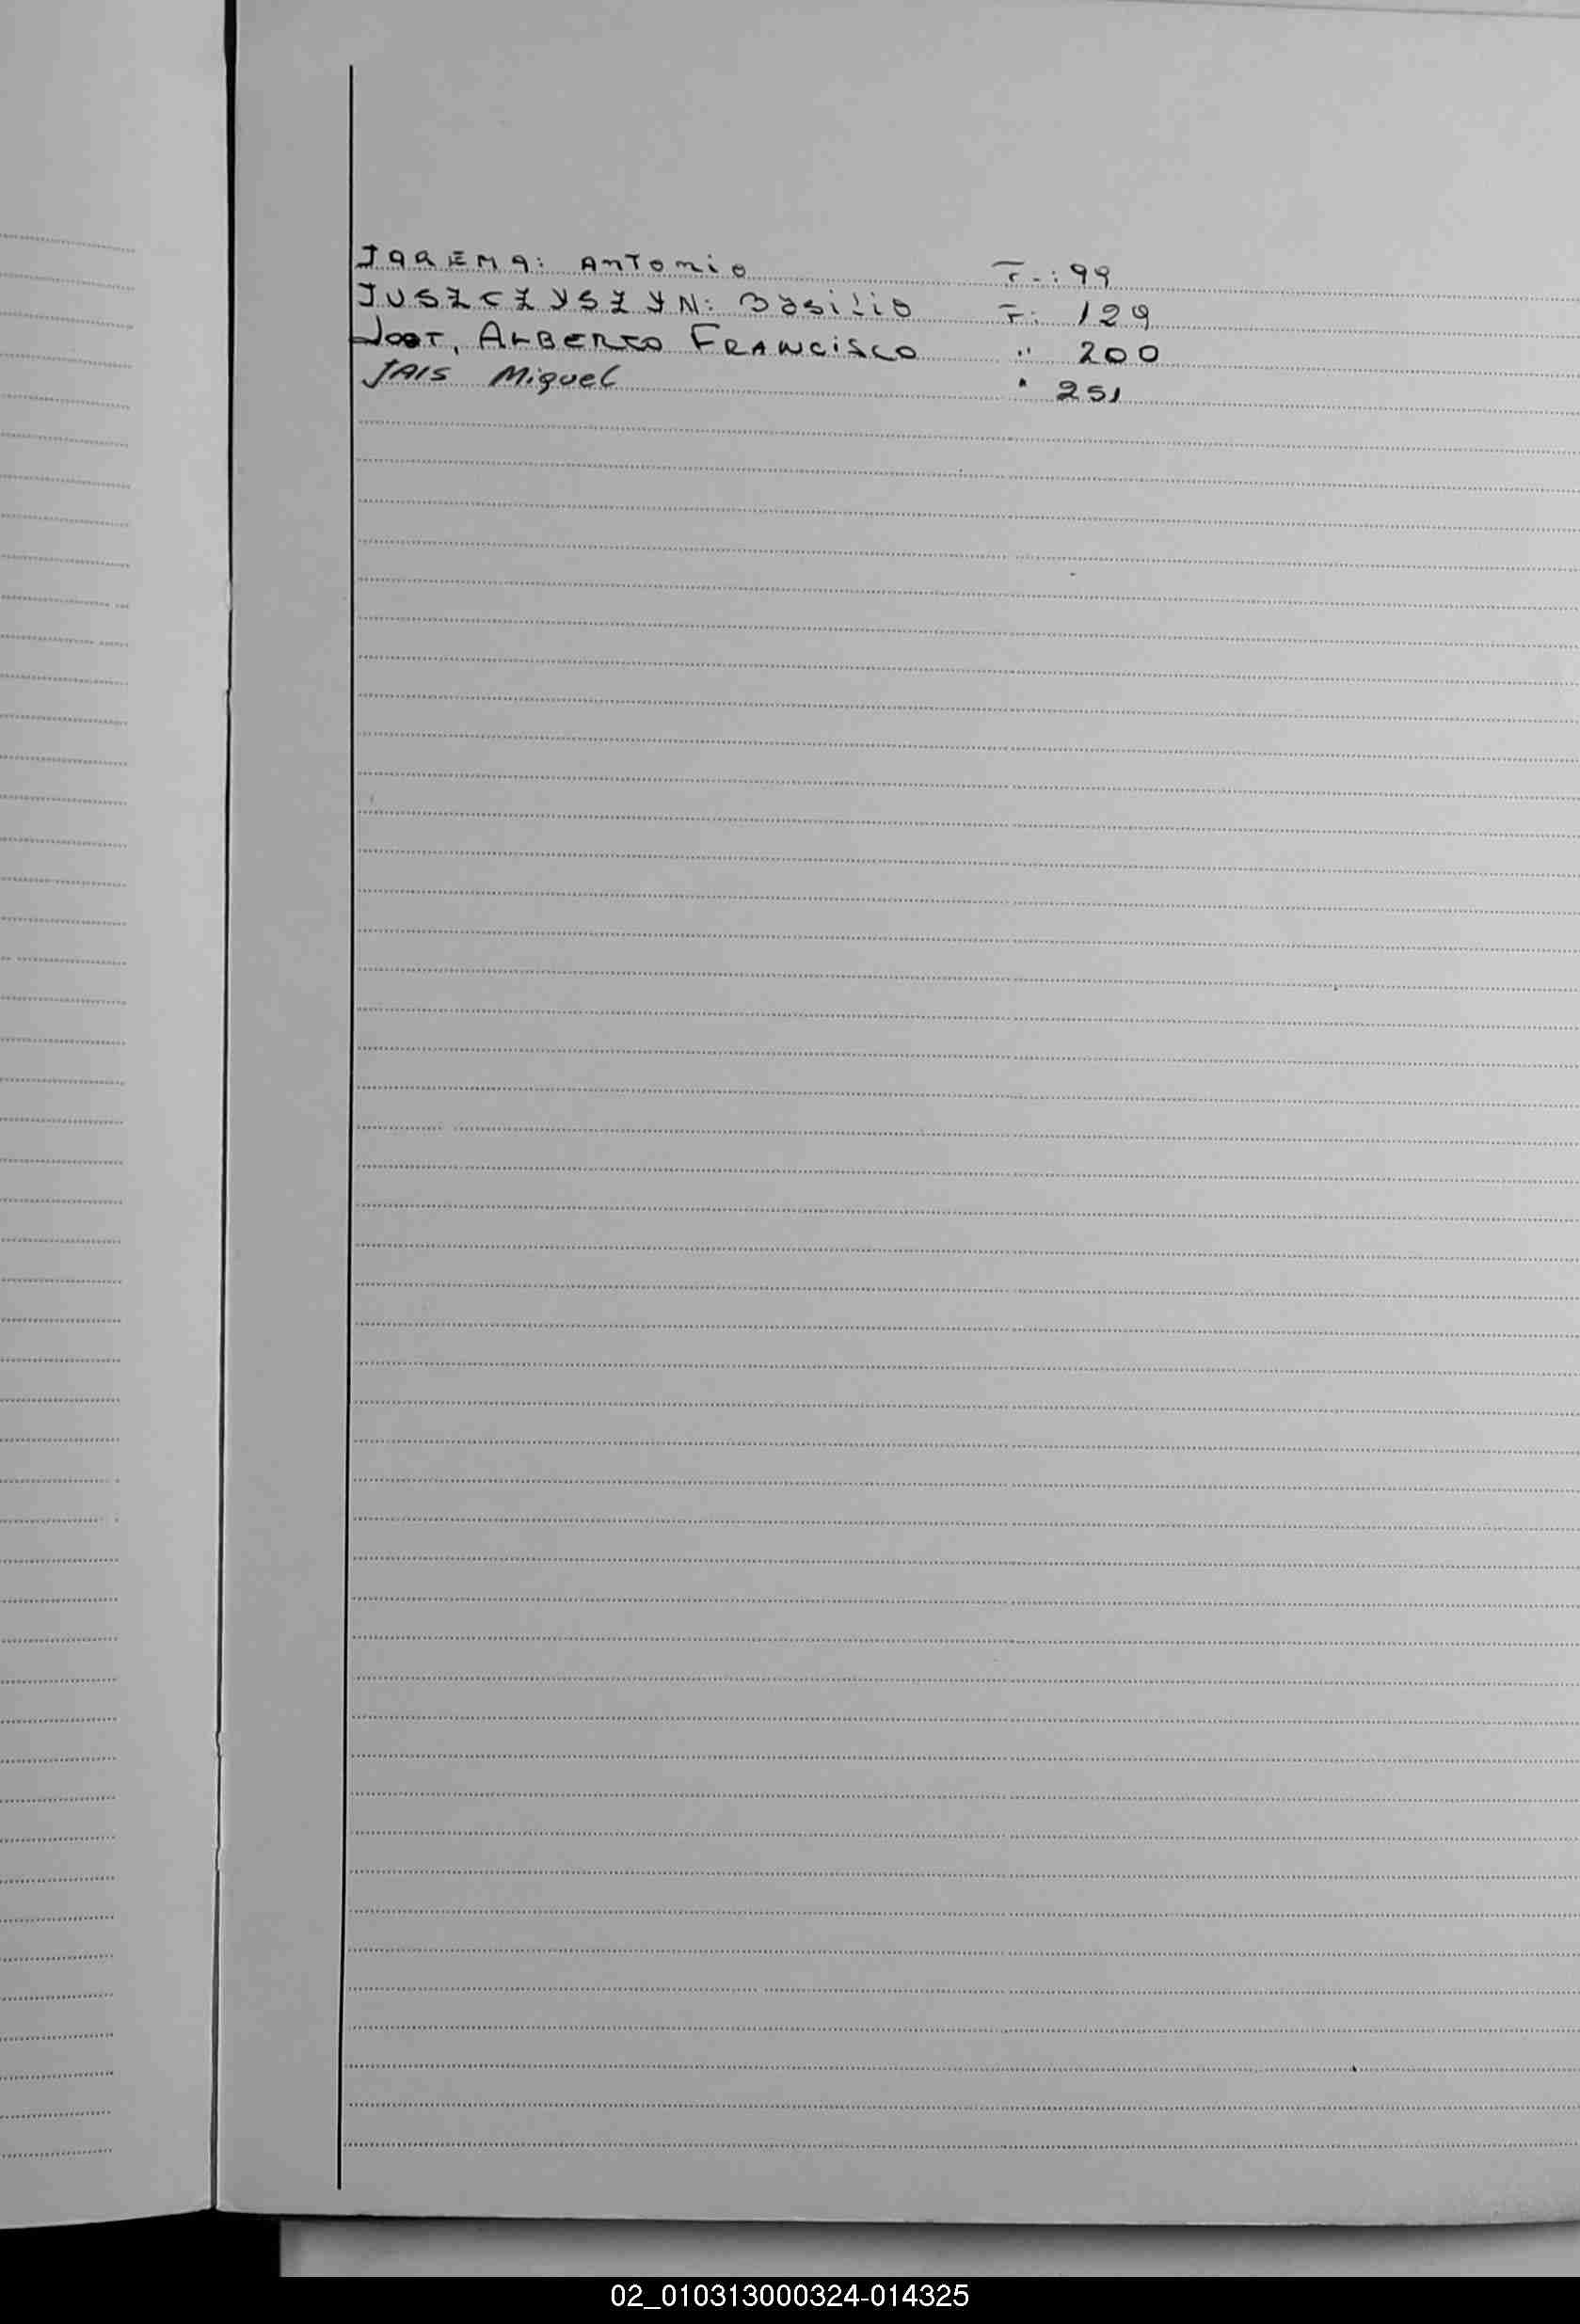 JAREMA: Antonio F.: 99
JUSZCZYSZYN: Basilio F: 129
Joot, ALBERTO FRANCISCO " 200
JAIS Miguel " 251
02_010313000324-014325